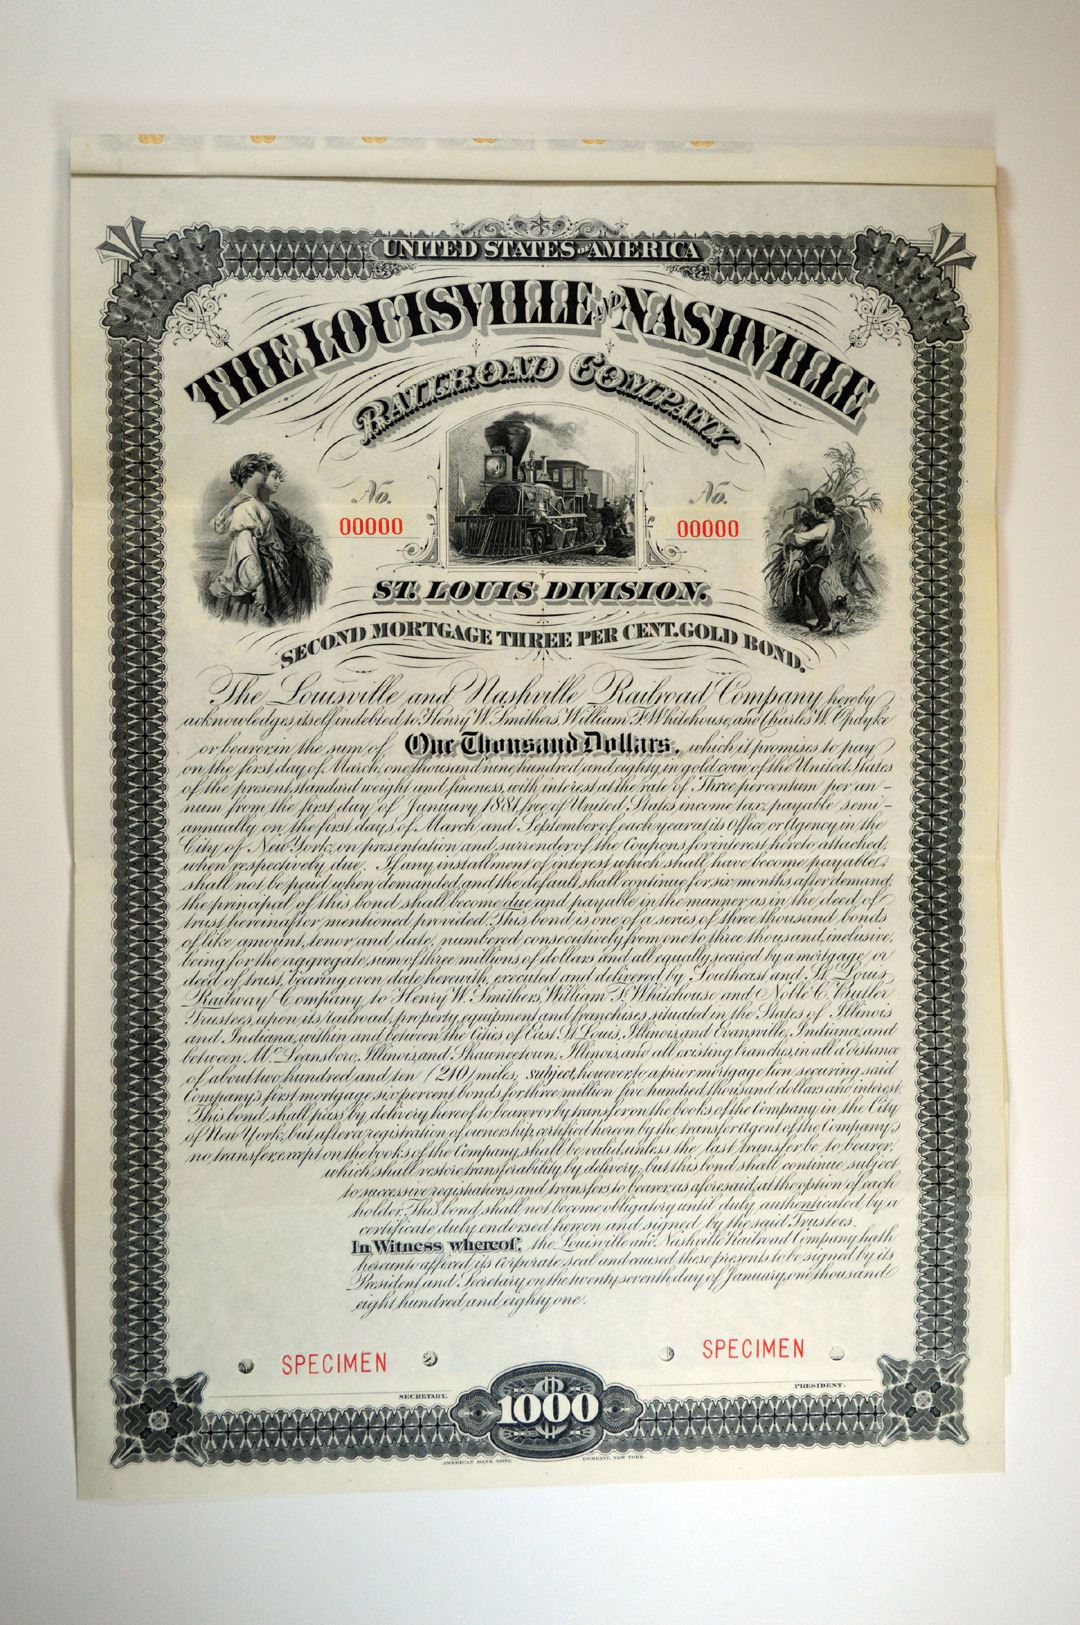 UNITED STATES OF AMERICA
THE LOUISVILLE AND NASHVILLE
RAILROAD COMPANY
No. No.
00000 00000
ST. LOUIS DIVISION.
SECOND MORTGAGE THREE PER CENT. GOLD BOND.
The Louisville and Nashville Railroad Company hereby
acknowledges itself indebted to Henry W. Smithers, William F. Whitehouse, and Charles W. Opdyke
or bearer, in the sum of One Thousand Dollars, which it promises to pay
on the first day of March, one thousand nine hundred and eighty, in gold coin of the United States
of the present standard weight and fineness, with interest at the rate of Three per centum per an-
num from the first day of January 1881, free of United States income tax, payable semi-
annually on the first days of March and September of each year at its Office or Agency in the
City of New York, on presentation and surrender of the Coupons for interest hereto attached,
when respectively due. If any installment of interest which shall have become payable
shall not be paid when demanded, and the default shall continue for six months after demand,
the principal of this bond shall become due and payable in the manner as in the deed of
trust hereinafter mentioned provided. This bond is one of a series of three thousand bonds
of like amount, tenor and date, numbered consecutively from one to three thousand, inclusive,
being for the aggregate sum of three millions of dollars and all equally secured by a mortgage or
deed of trust, bearing even date herewith, executed and delivered by Southeast and St. Louis
Railway Company to Henry W. Smithers, William F. Whitehouse and Noble C. Butler
Trustees, upon its railroad, property, equipment and franchises, situated in the States of Illinois
and Indiana, within and between the Cities of East St. Louis, Illinois, and Evansville, Indiana, and
between McLeansboro, Illinois, and Shawneetown, Illinois, and all existing branches, in all a distance
of about two hundred and ten (210) miles; subject, however, to a prior mortgage lien securing said
Company's first mortgage six per cent bonds for three million five hundred thousand dollars and interest.
This bond shall pass by delivery hereof to bearer or by transfer on the books of the Company in the City
of New York, but after a registration of ownership, certified hereon by the transfer Agent of the Company,
no transfer, except on the books of the Company, shall be valid, unless the last transfer be to bearer,
which shall restore transferability by delivery; but this bond shall continue subject
to successive registrations and transfers to bearer, as aforesaid, at the option of each
holder. This bond shall not become obligatory until duly authenticated by a
certificate duly endorsed hereon and signed by the said Trustees.
In Witness whereof, the Louisville and Nashville Railroad Company hath
hereunto affixed its Corporate seal and caused these presents to be signed by its
President and Secretary on the twenty seventh day of January, one thousand
eight hundred and eighty one.
SPECIMEN SPECIMEN
SECRETARY. PRESIDENT.
1000
AMERICAN BANK NOTE COMPANY, NEW YORK.